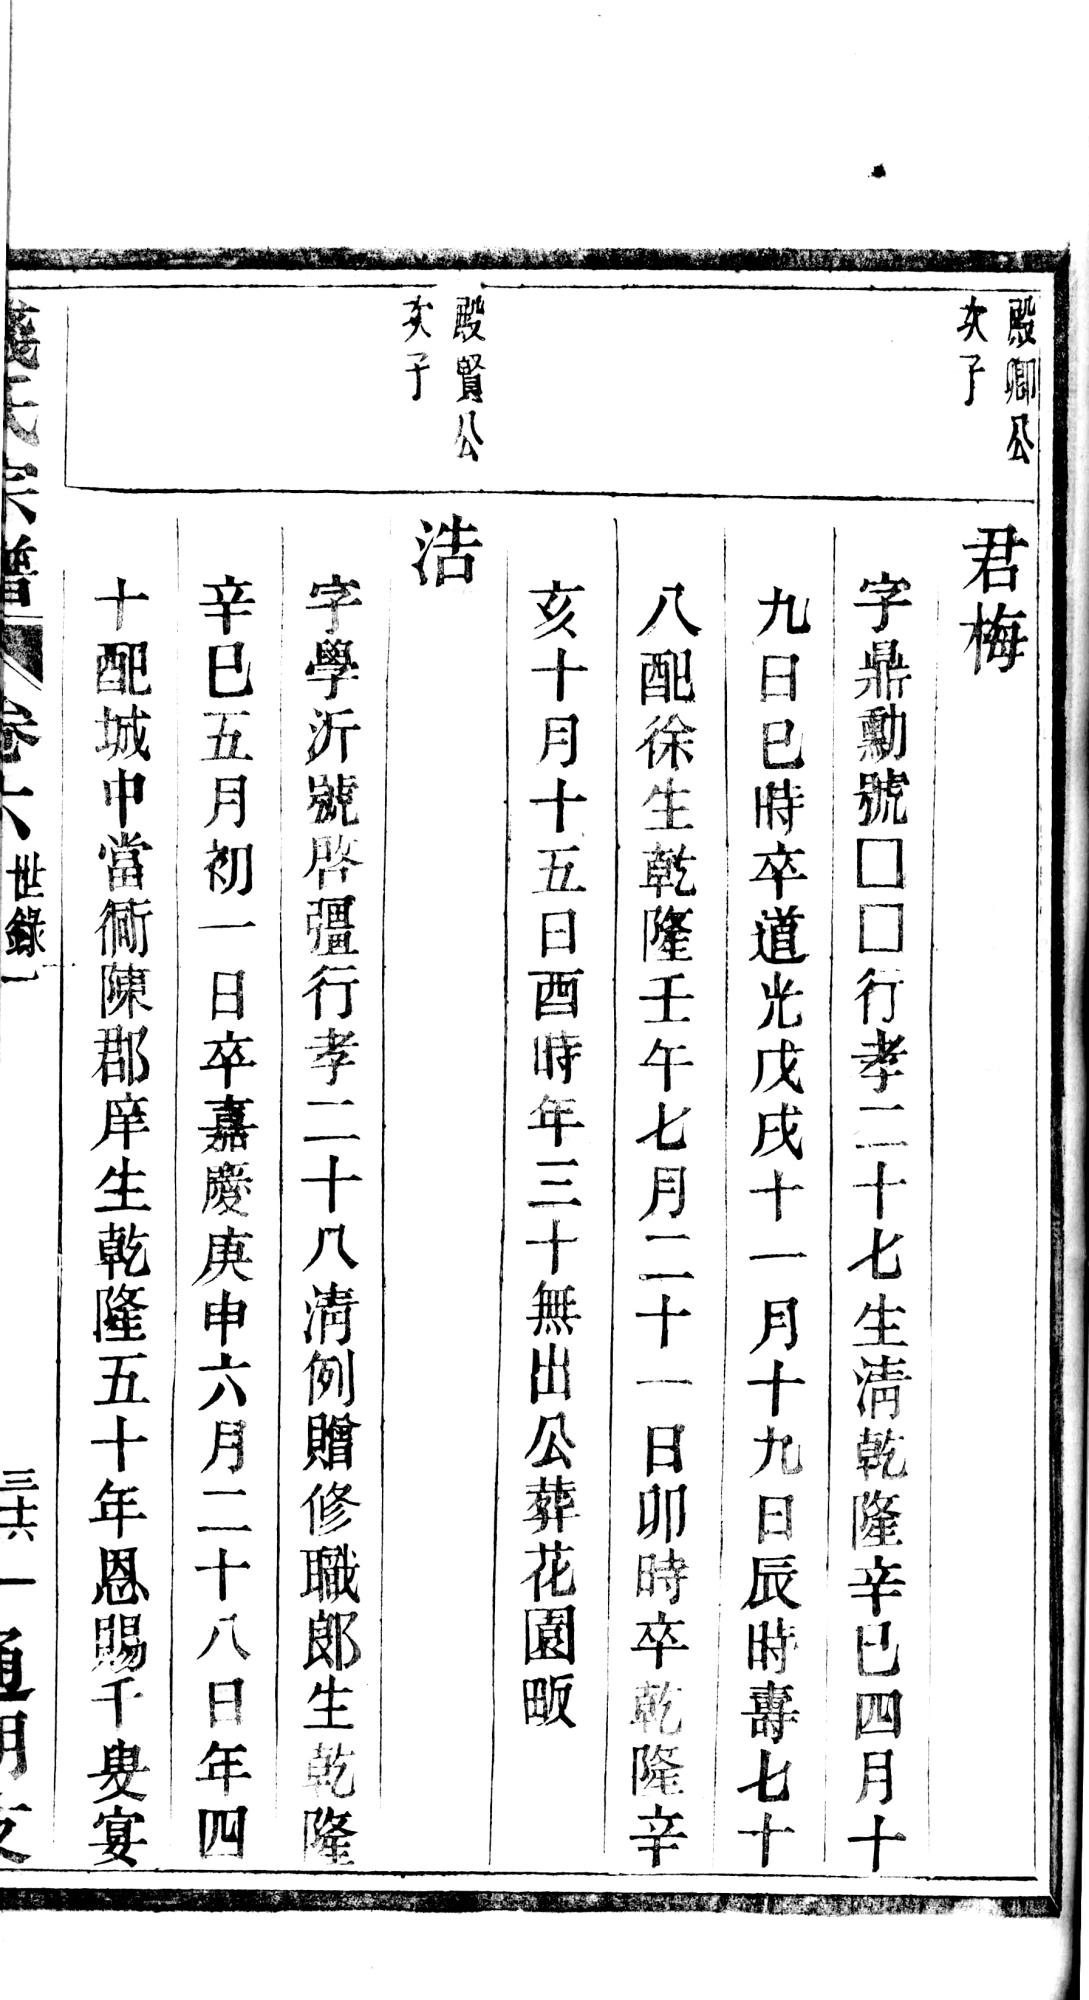 殿卿公
次子
君梅
字鼎勳號□□行孝二十七生清乾隆辛巳四月十
九日巳時卒道光戊戌十一月十九日辰時壽七十
八配徐生乾隆壬午七月二十一日卯時卒乾隆辛
亥十月十五日酉時年三十無出公葬花園畈
殿賢公
次子
浩
字學沂號啓彊行孝二十八清例贈修職郎生乾隆
辛巳五月初一日卒嘉慶庚申六月二十八日年四
十配城中當衕陳郡庠生乾隆五十年恩賜千叟宴
氏宗譜
卷六
世錄一
三十六